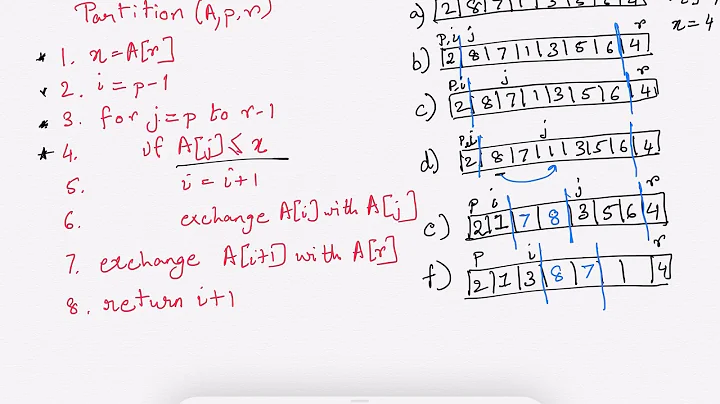 Partition (A,p,r)
1. x=A[r]
2. i=p-1
3. for j=p to r-1
4. if A[j]≤x
5. i=i+1
6. exchange A[i] with A[j]
7. exchange A[i+1] with A[r]
8. return i+1
a)
x=4
p,i j r
b) 2|8|7|1|3|5|6|4
p,i j r
c) 2|8|7|1|3|5|6|4
p,i j r
d) 2|8|7|1|3|5|6|4
p i j r
e) 2|1|7|8|3|5|6|4
p i r
f) 2|1|3|8|7| | |4